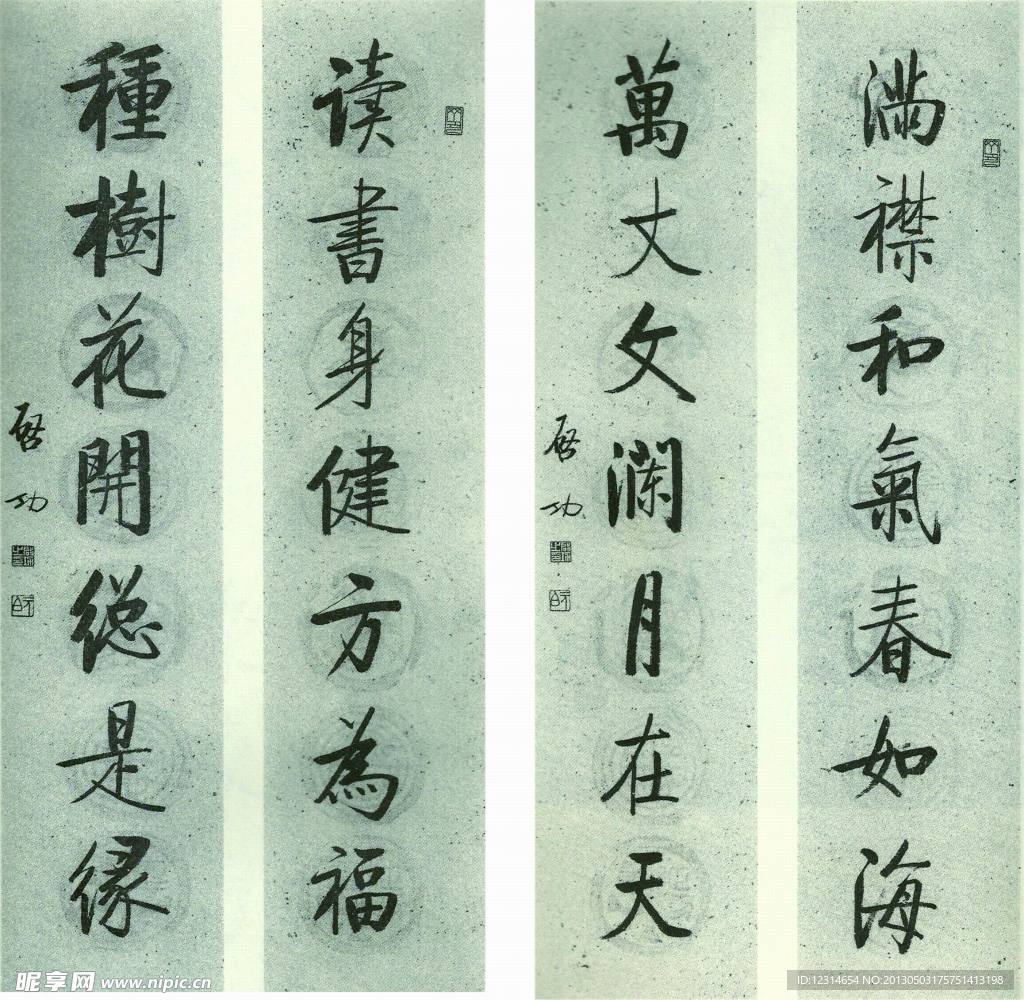 满襟和氣春如海
萬丈文瀾月在天
启功
读書身健方為福
種樹花開總是緣
启功
昵享网 www.nipic.cn
ID:12314654 NO:20130503175751413198